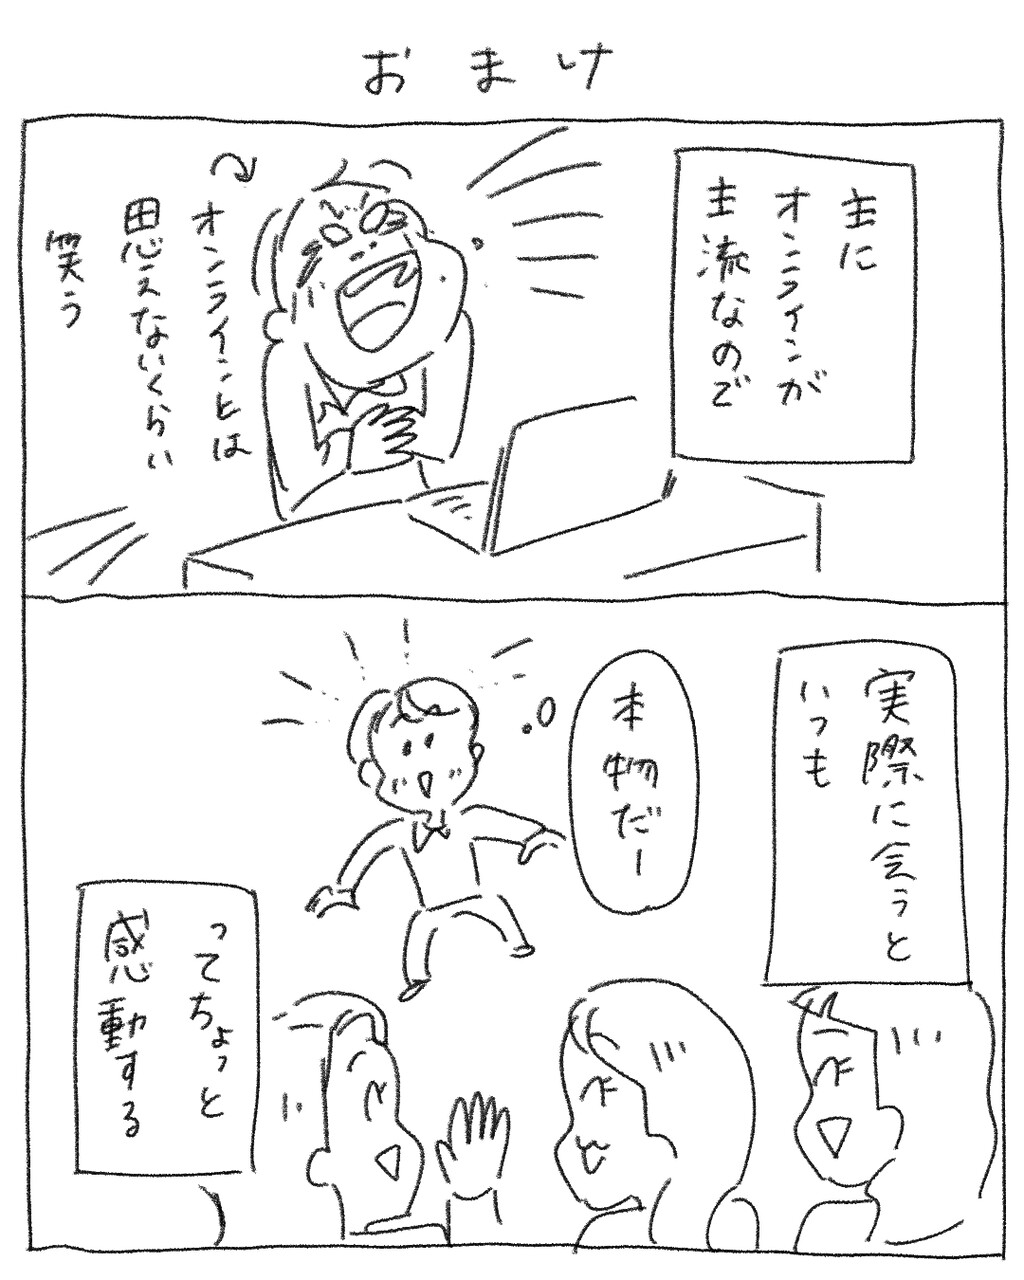 おまけ
主に
オンラインが
主流なので
オンラインとは
思えないくらい
笑う
実際に会うと
いつも
本物だー
ってちょっと
感動する